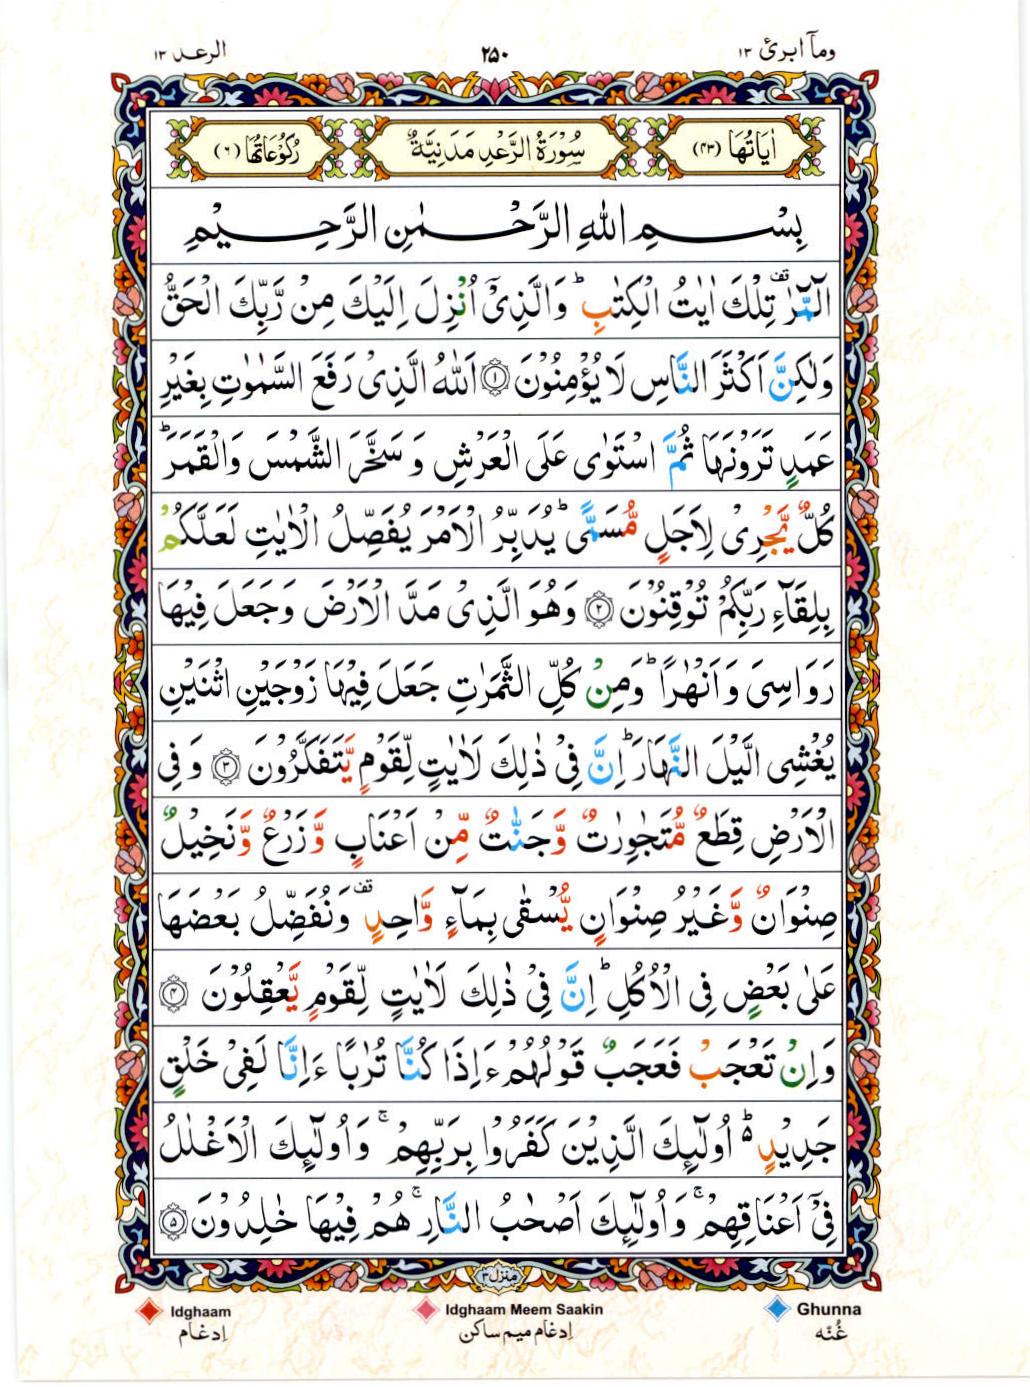 ومآ ابرئ ١٣ ٢٥٠ الرعد ١٣
اٰيَاتُهَا (٤٣) سُوْرَةُ الرَّعْدِ مَدَنِيَّةٌ رُكُوْعَاتُهَا (٦)
بِسْمِ اللّٰهِ الرَّحْمٰنِ الرَّحِيْمِ
الٓمّٓرٰ ۫ تِلْكَ اٰيٰتُ الْكِتٰبِ ؕ وَالَّذِىْۤ اُنْزِلَ اِلَيْكَ مِنْ رَّبِّكَ الْحَقُّ
وَلٰكِنَّ اَكْثَرَ النَّاسِ لَا يُؤْمِنُوْنَ ۝١ اَللّٰهُ الَّذِىْ رَفَعَ السَّمٰوٰتِ بِغَيْرِ
عَمَدٍ تَرَوْنَهَا ثُمَّ اسْتَوٰى عَلَى الْعَرْشِ وَسَخَّرَ الشَّمْسَ وَالْقَمَرَ ؕ
كُلٌّ يَّجْرِىْ لِاَجَلٍ مُّسَمًّى ؕ يُدَبِّرُ الْاَمْرَ يُفَصِّلُ الْاٰيٰتِ لَعَلَّكُمْ
بِلِقَآءِ رَبِّكُمْ تُوْقِنُوْنَ ۝٢ وَهُوَ الَّذِىْ مَدَّ الْاَرْضَ وَجَعَلَ فِيْهَا
رَوَاسِىَ وَاَنْهٰرًا ؕ وَمِنْ كُلِّ الثَّمَرٰتِ جَعَلَ فِيْهَا زَوْجَيْنِ اثْنَيْنِ
يُغْشِى الَّيْلَ النَّهَارَ ؕ اِنَّ فِىْ ذٰلِكَ لَاٰيٰتٍ لِّقَوْمٍ يَّتَفَكَّرُوْنَ ۝٣ وَفِى
الْاَرْضِ قِطَعٌ مُّتَجٰوِرٰتٌ وَّجَنّٰتٌ مِّنْ اَعْنَابٍ وَّزَرْعٌ وَّنَخِيْلٌ
صِنْوَانٌ وَّغَيْرُ صِنْوَانٍ يُّسْقٰى بِمَآءٍ وَّاحِدٍ ۫ وَنُفَضِّلُ بَعْضَهَا
عَلٰى بَعْضٍ فِى الْاُكُلِ ؕ اِنَّ فِىْ ذٰلِكَ لَاٰيٰتٍ لِّقَوْمٍ يَّعْقِلُوْنَ ۝٤
وَاِنْ تَعْجَبْ فَعَجَبٌ قَوْلُهُمْ ءَاِذَا كُنَّا تُرٰبًا ءَاِنَّا لَفِىْ خَلْقٍ
جَدِيْدٍ ۬ؕ اُولٰٓئِكَ الَّذِيْنَ كَفَرُوْا بِرَبِّهِمْ ۚ وَاُولٰٓئِكَ الْاَغْلٰلُ
فِىْۤ اَعْنَاقِهِمْ ۚ وَاُولٰٓئِكَ اَصْحٰبُ النَّارِ ۚ هُمْ فِيْهَا خٰلِدُوْنَ ۝٥
منزل ٣
Idghaam Idghaam Meem Saakin Ghunna
اِدغام اِدغام ميم ساكن غُنّه